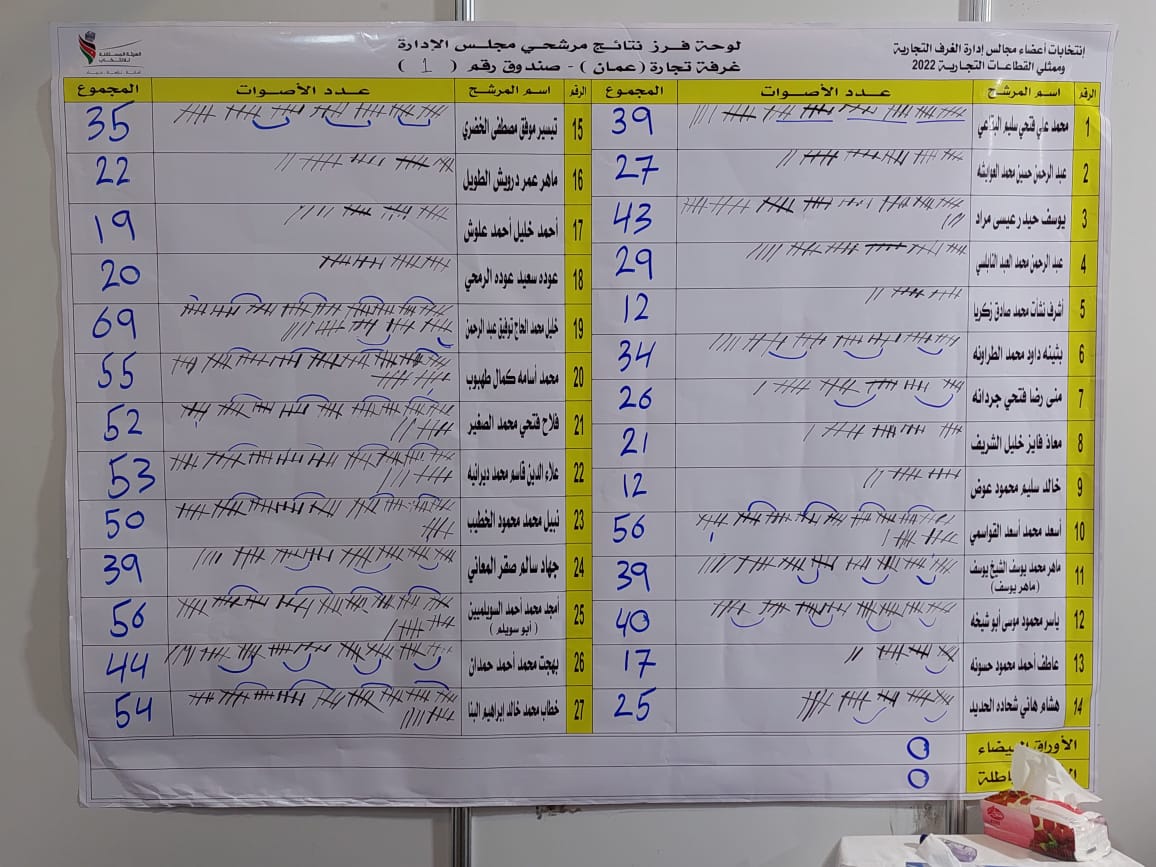 إنتخابات أعضاء مجالس إدارة الغرف التجارية
وممثلي القطاعات التجارية 2022
لوحة فرز نتائج مرشحي مجلس الإدارة
غرفة تجارة (عمان) - صندوق رقم ( 1 )
الهيئة المستقلة
للانتخاب
الرقم اسم المرشح عدد الأصوات المجموع
1 محمد علي فتحي سليم البقاعي 39
2 عبد الرحمن حسين محمد العوايشه 27
3 يوسف حيدر عيسى مراد 43
4 عبد الرحمن محمد العبد النابلسي 29
5 أشرف نشأت محمد صادق زكريا 12
6 بثينه داود محمد الطراونه 34
7 منى رضا فتحي جردانه 26
8 معاذ فايز خليل الشريف 21
9 خالد سليم محمود عوض 12
10 أسعد محمد أسعد القواسمي 56
11 ماهر محمد يوسف الشيخ يوسف 39
(ماهر يوسف)
12 ياسر محمود موسى أبو شيخه 40
13 عاطف أحمد محمود حسونه 17
14 هشام هاني شحاده الحديد 25
الرقم اسم المرشح عدد الأصوات المجموع
15 تيسير موفق مصطفى الخضري 35
16 ماهر عمر درويش الطويل 22
17 أحمد خليل أحمد علوش 19
18 عوده سعيد عوده الرمحي 20
19 خليل محمد الحاج توفيق عبد الرحمن 69
20 محمد أسامه كمال طهبوب 55
21 فلاح فتحي محمد الصغير 52
22 علاء الدين قاسم محمد ديرانيه 53
23 نبيل محمد محمود الخطيب 50
24 جهاد سالم صقر المعاني 39
25 أمجد محمد أحمد السويلميين 56
( أبو سويلم )
26 بهجت محمد أحمد حمدان 44
27 خطاب محمد خالد إبراهيم البنا 54
الأوراق البيضاء 0
0